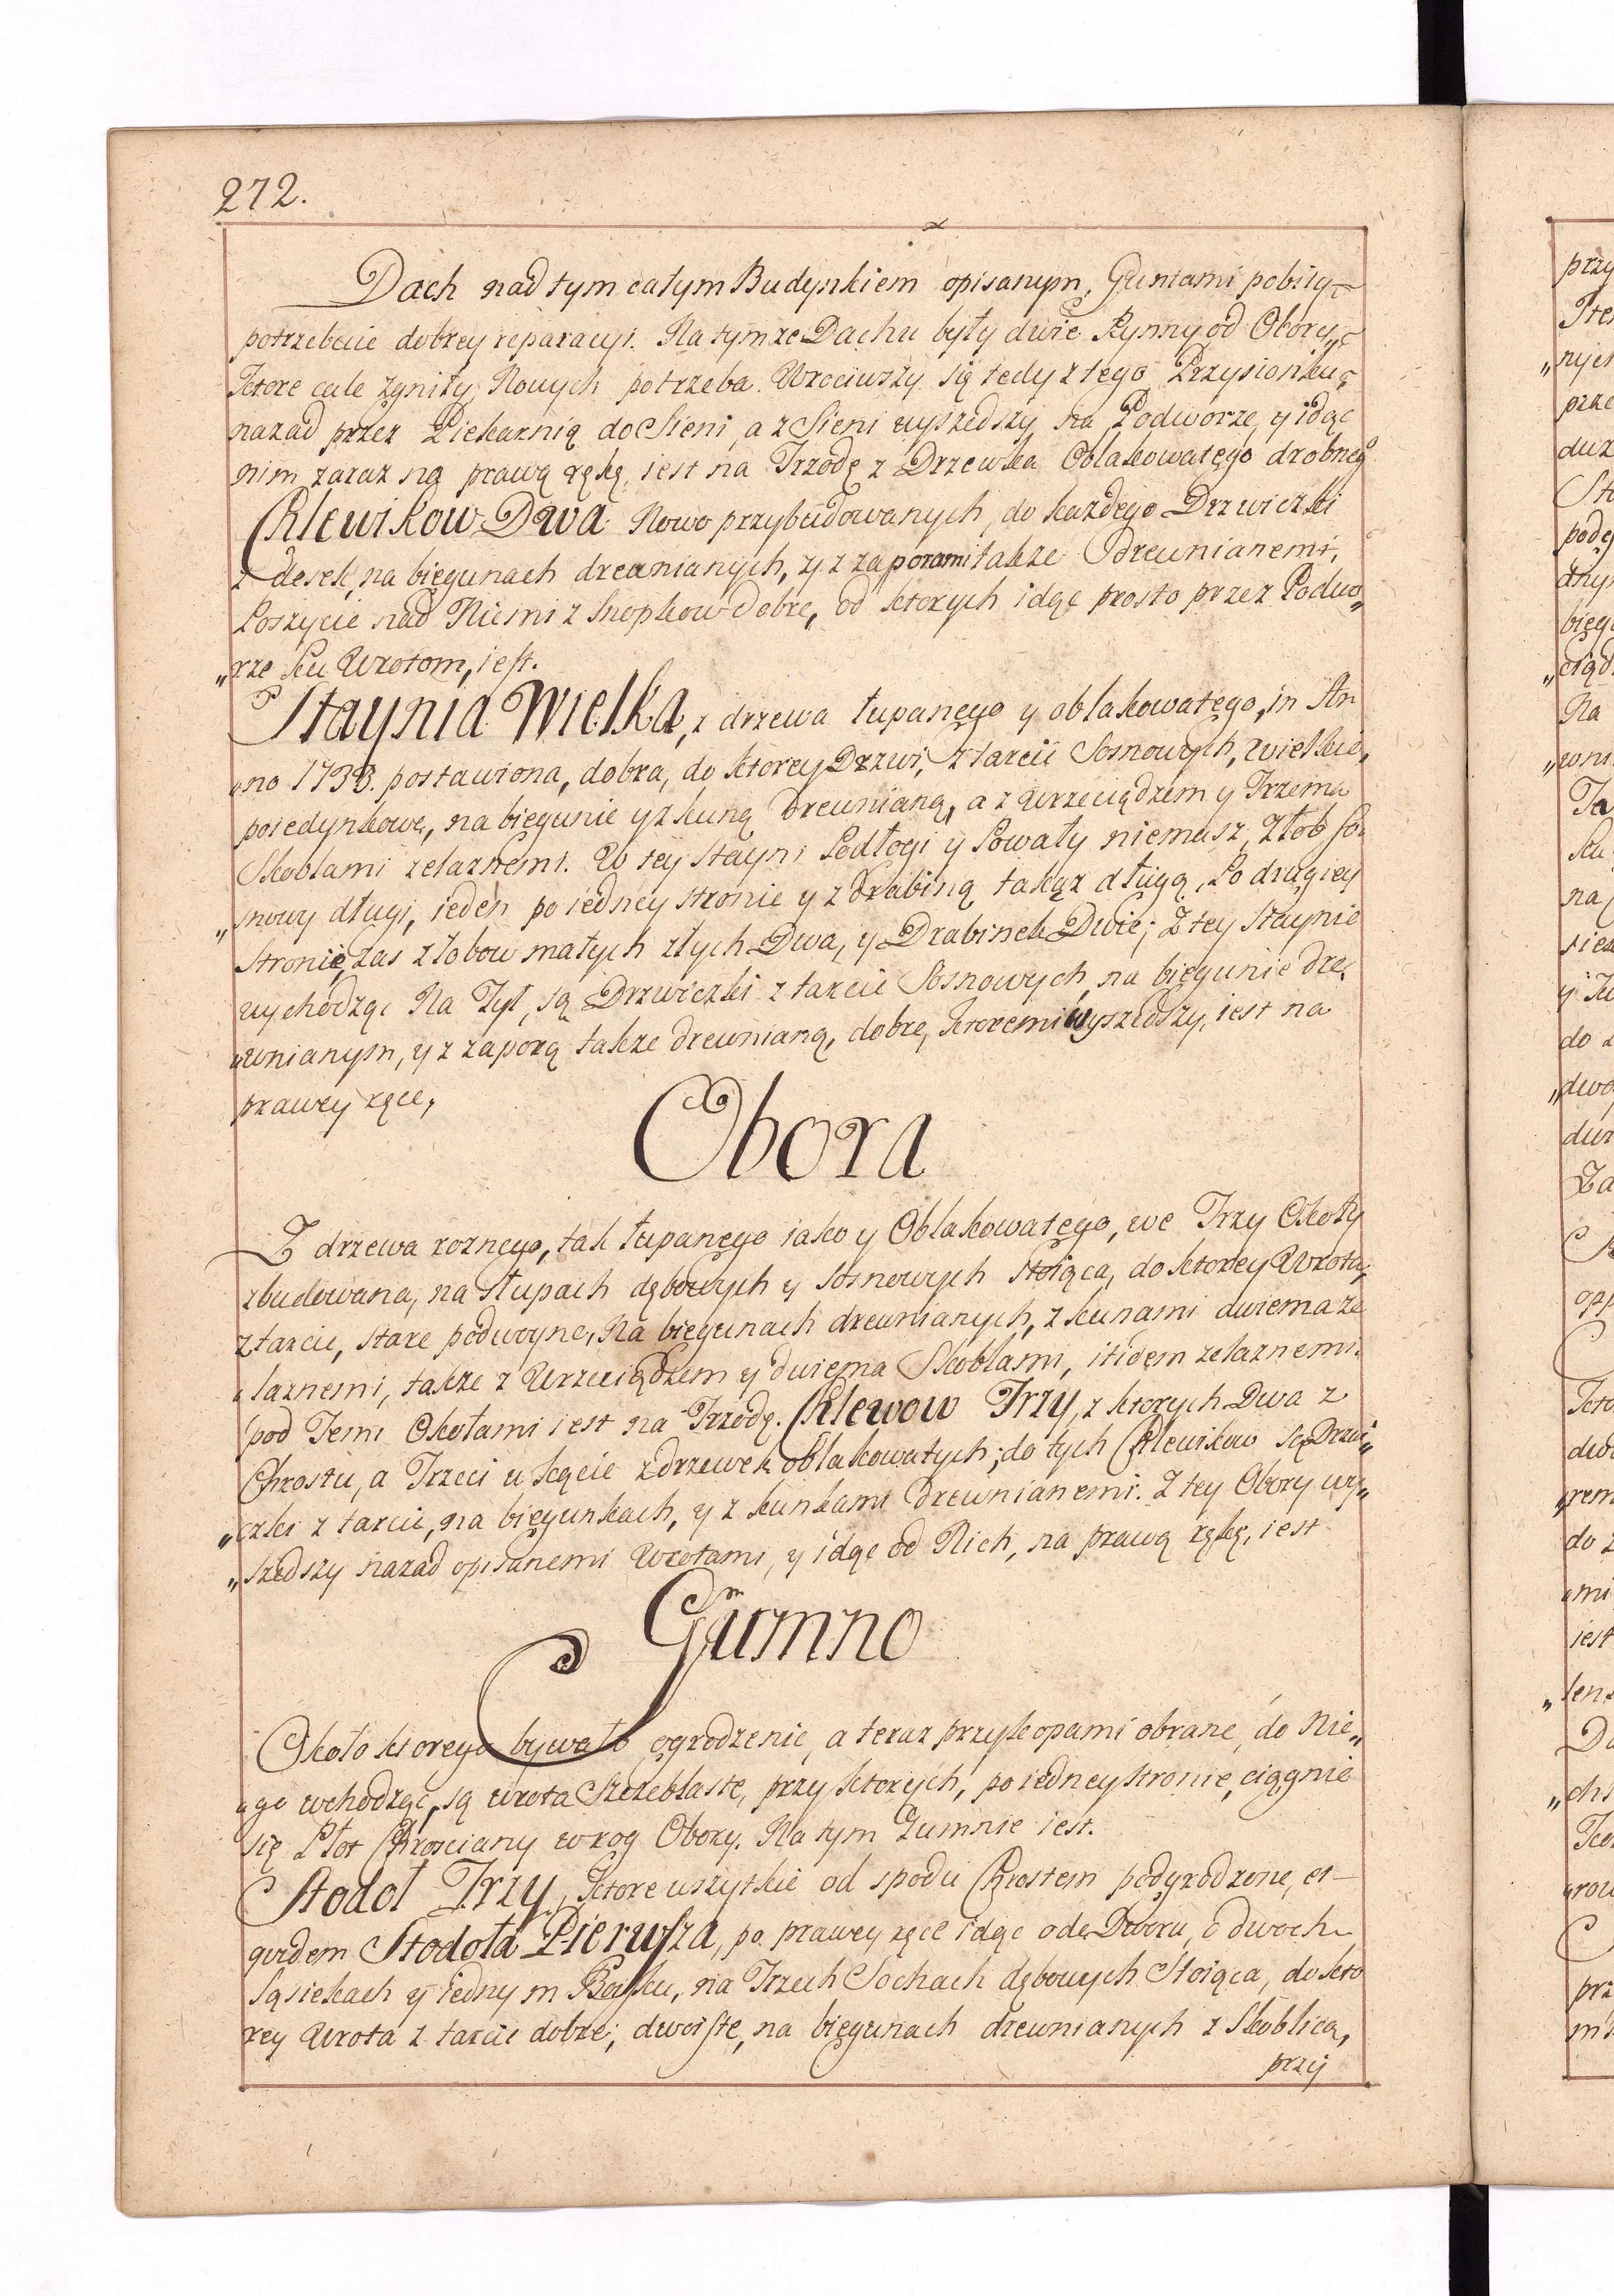 272.
Dach nad tym całym Budynkiem opisanym, Guntami pobity
potrzebuie dobrey reparacyi. Na tymże Dachu były dwie Rynny od Obory,
ktore cale zgniły, Nowych potrzeba. Wrociwszy się tedy z tego Przysionku
nazad przez Piekarnią do Sieni, a z Sieni wyszedszy na Podworze, y idąc
nim zaraz na prawą rękę, iest na Trzodę z Drzewka Oblakowatego drobnego
Chlewikow Dwa Nowo przybudowanych, do każdego Drzwiczki
z desek, na biegunach drewnianych, y z zaporami także drewnianemi,
Poszycie nad Niemi z Snopkow dobre, od ktorych idąc prosto przez Podwo„
„rze ku Wrotom, iest.
Staynia Wielka, z drzewa łupanego y oblakowatego, in An
„no 1733. postawiona, dobra, do ktorey Drzwi, z tarcic Sosnowych, wielkie,
poiedynkowe, na biegunie y z kuną drewnianą, a z Wrzeciądzem y Trzema
Skoblami żelaznemi. W tey Stayni Podłogi y Powały niemasz, Złob So„
„snowy długi, ieden po iedney stronie y z drabiną takąż długą, Po drugiey
Stronie zas złobow małych złych Dwa, y Drabinek Dwie; Z tey Staynie
wychodząc Na Tył, są Drzwiczki z tarcic Sosnowych, na biegunie dre„
„wnianym, y z zaporą także drewnianą, dobre, ktoremi wyszedszy, iest na
prawey ręce,
Obora
Z drzewa rożnego, tak łupanego iako y Oblakowatego, we Trzy Okoły
zbudowana, na słupach dębowych y sosnowych stoiąca, do ktorey Wrota,
z tarcic, stare podwoyne, Na biegunach drewnianych, z kunami dwiema że
„laznemi, także z Wrzeciądzem y dwiema Skoblami, itidem żelaznemi.
pod Temi Okołami iest na Trzodę. Chlewow Trzy, z ktorych Dwa z
Chrostu, a Trzeci w kącie z drzewek oblakowatych; do tych Chlewikow są Drzwi„
„czki z tarcic, na biegunkach, y z kunkami drewnianemi. Z tey Obory wy„
„szedszy nazad opisanemi Wrotami, y idąc od Nich, na prawą rękę, iest
Gumno
Około ktorego bywało ogrodzenie, a teraz przykopami obrane, do Nie„
„go wchodząc, są wrota Szczeblaste, przy ktorych, po iedney stronie, ciągnie
się Płot Chrosciany w rog Obory. Na tym Gumnie iest.
Stodoł Trzy, ktore wszytkie od spodu Chrostem podgrodzone, et
quidem Stodoła Pierwsza, po prawey ręce idąc ode Dworu, o dwoch
Sąsiekach y iednym Boisku, na Trzech Sochach dębowych Stoiąca, do kto
rey Wrota z tarcic dobre, dwoiste, na biegunach drewnianych z Skoblicą,
przy